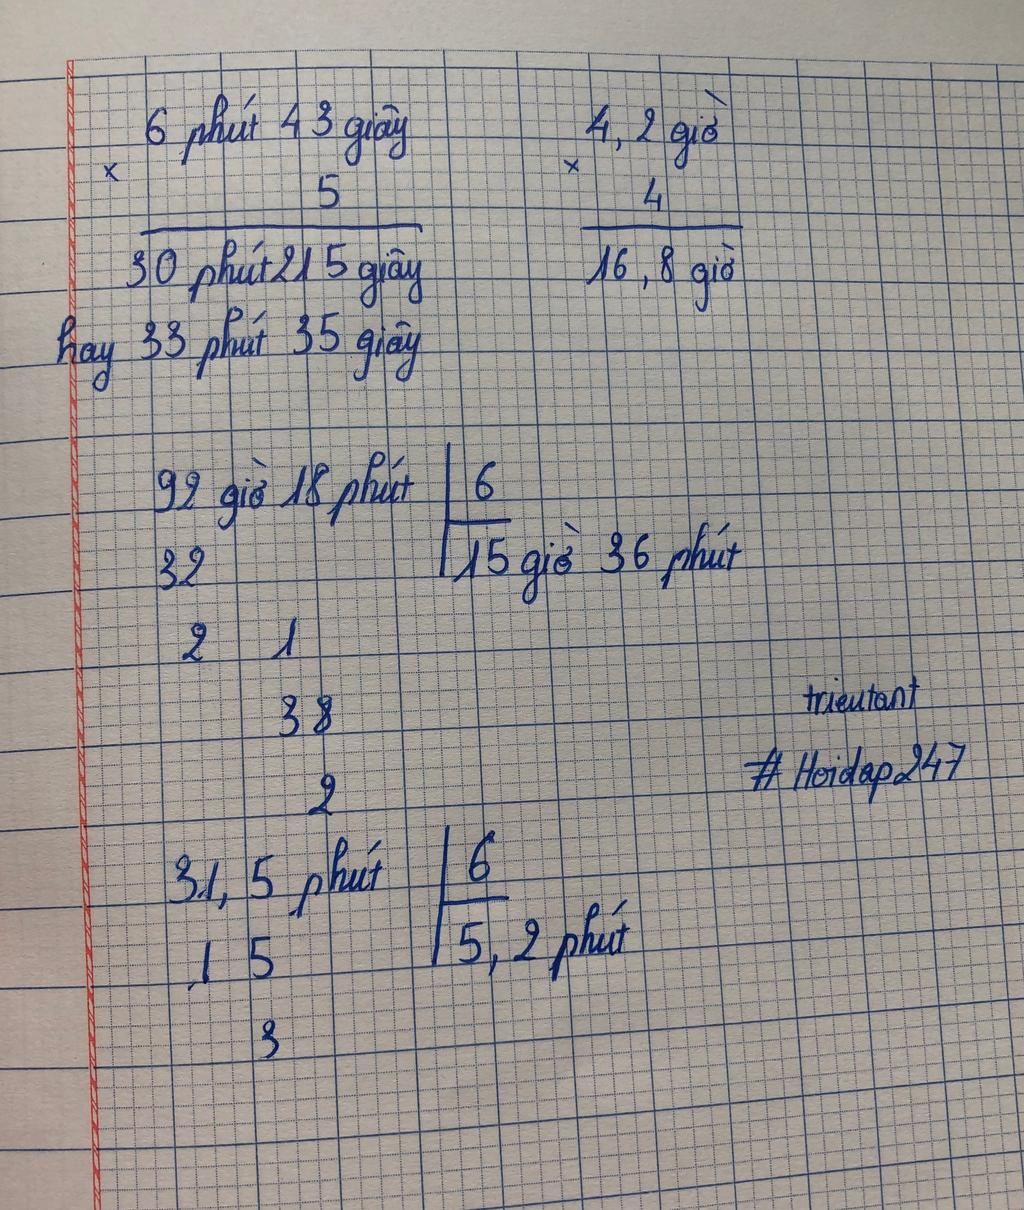 6 phút 43 giây
×
5
30 phút 215 giây
hay 33 phút 35 giây
4,2 giờ
×
4
16,8 giờ
92 giờ 18 phút 6
32 15 giờ 36 phút
2 1
38
2
trieutant
#Hoidap247
31,5 phút 6
1 5 5,2 phút
3